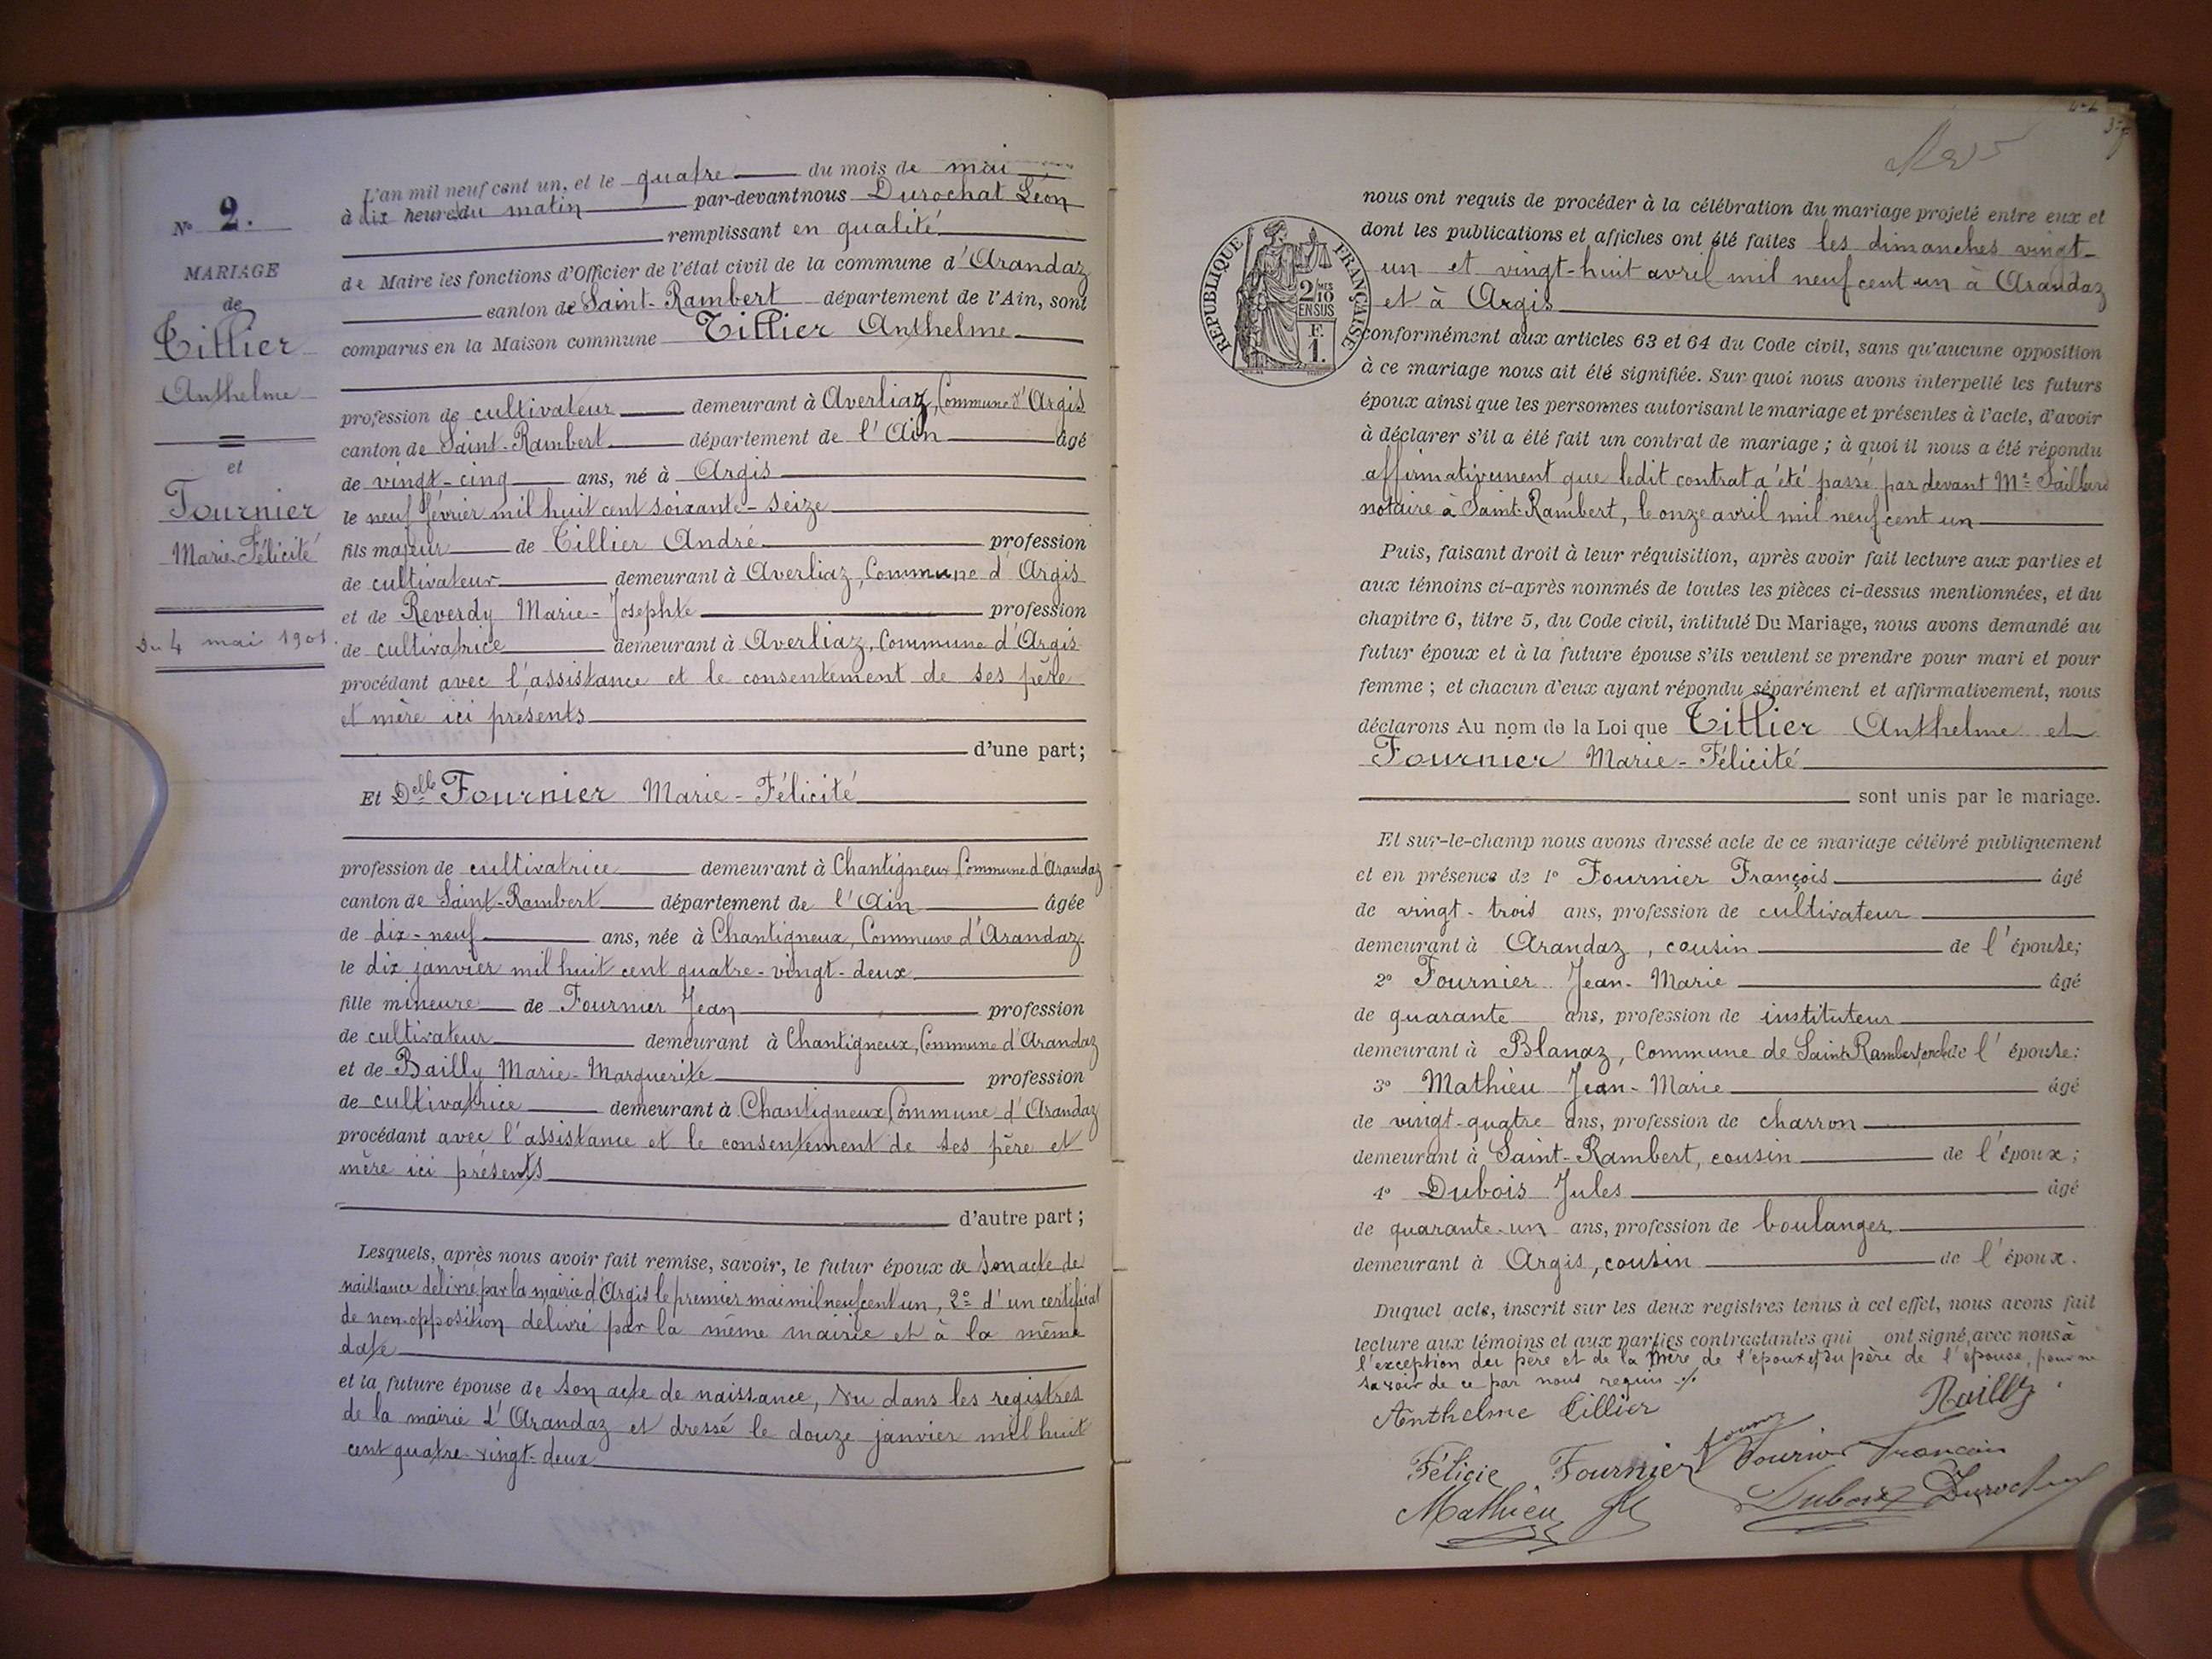 N° 2.
MARIAGE
de
Tillier
Anthelme
et
Fournier
Marie-Félicité
Du 4 mai 1901.
L'an mil neuf cent un, et le quatre du mois de mai
à dix heures du matin par-devant nous Durochat Léon
remplissant en qualité
de Maire les fonctions d'Officier de l'état civil de la commune d'Arandaz
canton de Saint-Rambert département de l'Ain, sont
comparus en la Maison commune Tillier Anthelme
profession de cultivateur demeurant à Averliaz, Commune d'Argis
canton de Saint-Rambert département de l'Ain âgé
de vingt-cinq ans, né à Argis
le neuf février mil huit cent soixante-seize
fils majeur de Tillier André profession
de cultivateur demeurant à Averliaz, Commune d'Argis
et de Reverdy Marie-Josephte profession
de cultivatrice demeurant à Averliaz, Commune d'Argis
procédant avec l'assistance et le consentement de ses père
et mère ici présents
d'une part;
Et Delle Fournier Marie-Félicité
profession de cultivatrice demeurant à Chantigneux Commune d'Arandaz
canton de Saint-Rambert département de l'Ain âgée
de dix-neuf ans, née à Chantigneux, Commune d'Arandaz
le dix janvier mil huit cent quatre-vingt-deux
fille mineure de Fournier Jean profession
de cultivateur demeurant à Chantigneux, Commune d'Arandaz
et de Bailly Marie-Marguerite profession
de cultivatrice demeurant à Chantigneux Commune d'Arandaz
procédant avec l'assistance et le consentement de ses père et
mère ici présents
d'autre part;
Lesquels, après nous avoir fait remise, savoir, le futur époux de son acte de
naissance délivré par la mairie d'Argis le premier mai mil neuf cent un, 2° d'un certificat
de non-opposition délivré par la même mairie et à la même
date
et la future épouse de son acte de naissance, vu dans les registres
de la mairie d'Arandaz et dressé le douze janvier mil huit
cent quatre-vingt-deux
RÉPUBLIQUE FRANÇAISE
2/10 MES
EN SUS
F.
1.
nous ont requis de procéder à la célébration du mariage projeté entre eux et
dont les publications et affiches ont été faites les dimanches vingt-
un et vingt-huit avril mil neuf cent un à Arandaz
et à Argis
conformément aux articles 63 et 64 du Code civil, sans qu'aucune opposition
à ce mariage nous ait été signifiée. Sur quoi nous avons interpellé les futurs
époux ainsi que les personnes autorisant le mariage et présentes à l'acte, d'avoir
à déclarer s'il a été fait un contrat de mariage; à quoi il nous a été répondu
affirmativement que ledit contrat a été passé par devant Me Saillard
notaire à Saint-Rambert, le onze avril mil neuf cent un
Puis, faisant droit à leur réquisition, après avoir fait lecture aux parties et
aux témoins ci-après nommés de toutes les pièces ci-dessus mentionnées, et du
chapitre 6, titre 5, du Code civil, intitulé Du Mariage, nous avons demandé au
futur époux et à la future épouse s'ils veulent se prendre pour mari et pour
femme; et chacun d'eux ayant répondu séparément et affirmativement, nous
déclarons Au nom de la Loi que Tillier Anthelme et
Fournier Marie-Félicité
sont unis par le mariage.
Et sur-le-champ nous avons dressé acte de ce mariage célébré publiquement
et en présence de 1° Fournier François âgé
de vingt-trois ans, profession de cultivateur
demeurant à Arandaz, cousin de l'épouse;
2° Fournier Jean-Marie âgé
de quarante ans, profession de instituteur
demeurant à Blanaz, Commune de Saint-Rambert, oncle de l'épouse;
3° Mathieu Jean-Marie âgé
de vingt-quatre ans, profession de charron
demeurant à Saint-Rambert, cousin de l'époux;
4° Dubois Jules âgé
de quarante-un ans, profession de boulanger
demeurant à Argis, cousin de l'époux.
Duquel acte, inscrit sur les deux registres tenus à cet effet, nous avons fait
lecture aux témoins et aux parties contractantes qui ont signé avec nous à
l'exception du père et de la mère de l'époux et du père de l'épouse, pour ne
savoir de ce par nous requis
Anthelme Tillier Bailly
Félicie Fournier Fournier François
Mathieu JM Dubois Durochat